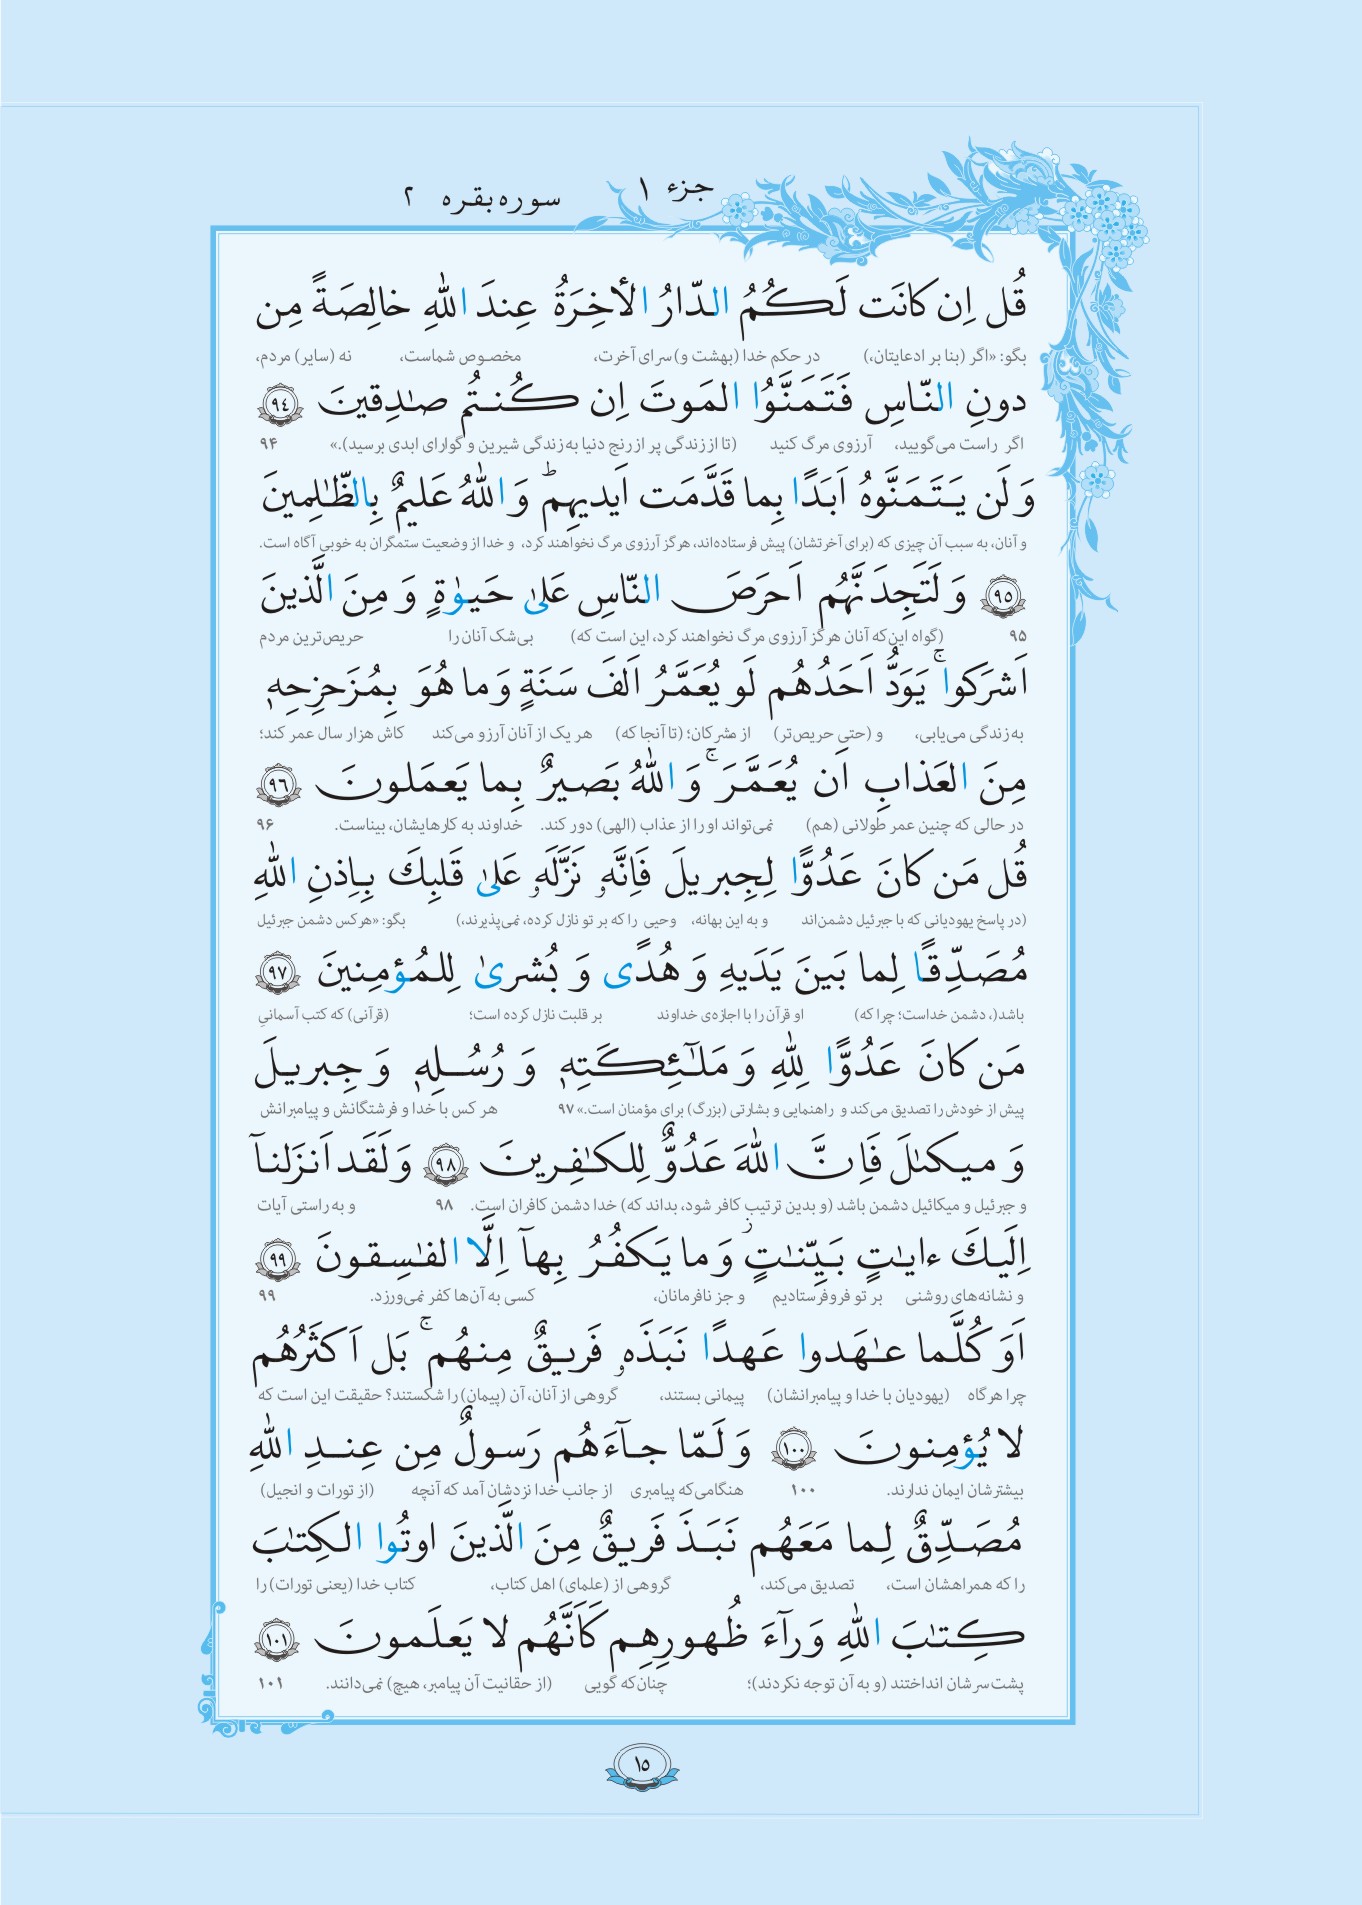 جزء ۱
سوره بقره ۲
قُل اِن كانَت لَكُمُ الدّارُ الأخِرَةُ عِندَ اللهِ خالِصَةً مِن
بگو: «اگر (بنا بر ادعایتان،) در حکم خدا (بهشت و) سرای آخرت، مخصوص شماست، نه (سایر) مردم،
دونِ النّاسِ فَتَمَنَّوُا المَوتَ اِن كُنتُم صٰدِقينَ ﴿٩٤﴾
اگر راست می‌گویید، آرزوی مرگ کنید (تا از زندگی پر از رنج دنیا به زندگی شیرین و گوارای ابدی برسید).» ۹۴
وَ لَن يَتَمَنَّوهُ اَبَدًا بِما قَدَّمَت اَيديهِم ؕ وَ اللهُ عَليمٌ بِالظّٰلِمينَ
و آنان، به سبب آن چیزی که (برای آخرتشان) پیش فرستاده‌اند، هرگز آرزوی مرگ نخواهند کرد، و خدا از وضعیت ستمگران به خوبی آگاه است.
﴿٩٥﴾ وَ لَتَجِدَنَّهُم اَحرَصَ النّاسِ عَلىٰ حَيوٰةٍ وَ مِنَ الَّذينَ
۹۵ (گواه این‌که آنان هرگز آرزوی مرگ نخواهند کرد، این است که) بی‌شک آنان را حریص‌ترین مردم
اَشرَكوا ۚ يَوَدُّ اَحَدُهُم لَو يُعَمَّرُ اَلفَ سَنَةٍ وَ ما هُوَ بِمُزَحزِحِهٖ
به زندگی می‌یابی، و (حتی حریص‌تر) از مشرکان؛ (تا آنجا که) هر یک از آنان آرزو می‌کند کاش هزار سال عمر کند؛
مِنَ العَذابِ اَن يُعَمَّرَ ۚ وَ اللهُ بَصيرٌ بِما يَعمَلونَ ﴿٩٦﴾
در حالی که چنین عمر طولانی (هم) نمی‌تواند او را از عذاب (الهی) دور کند. خداوند به کارهایشان، بیناست. ۹۶
قُل مَن كانَ عَدُوًّا لِجِبريلَ فَاِنَّهٗ نَزَّلَهٗ عَلىٰ قَلبِكَ بِاِذنِ اللهِ
(در پاسخ یهودیانی که با جبرئیل دشمن‌اند و به این بهانه، وحیی را که بر تو نازل کرده، نمی‌پذیرند،) بگو: «هرکس دشمن جبرئیل
مُصَدِّقًا لِما بَينَ يَدَيهِ وَ هُدًى وَ بُشرىٰ لِلمُؤمِنينَ ﴿٩٧﴾
باشد(، دشمن خداست؛ چرا که) او قرآن را با اجازه‌ی خداوند بر قلبت نازل کرده است؛ (قرآنی) که کتب آسمانیِ
مَن كانَ عَدُوًّا لِلّٰهِ وَ مَلٰٓئِكَتِهٖ وَ رُسُلِهٖ وَ جِبريلَ
پیش از خودش را تصدیق می‌کند و راهنمایی و بشارتی (بزرگ) برای مؤمنان است.» ۹۷ هر کس با خدا و فرشتگانش و پیامبرانش
وَ ميكىٰلَ فَاِنَّ اللهَ عَدُوٌّ لِلكٰفِرينَ ﴿٩٨﴾ وَ لَقَد اَنزَلنآ
و جبرئیل و میکائیل دشمن باشد (و بدین ترتیب کافر شود، بداند که) خدا دشمن کافران است. ۹۸ و به راستی آیات
اِلَيكَ ءايٰتٍ بَيِّنٰتٍ ز وَ ما يَكفُرُ بِهآ اِلَّا الفٰسِقونَ ﴿٩٩﴾
و نشانه‌های روشنی بر تو فروفرستادیم و جز نافرمانان، کسی به آن‌ها کفر نمی‌ورزد. ۹۹
اَوَ كُلَّما عٰهَدوا عَهدًا نَبَذَهٗ فَريقٌ مِنهُم ۚ بَل اَكثَرُهُم
چرا هرگاه (یهودیان با خدا و پیامبرانشان) پیمانی بستند، گروهی از آنان، آن (پیمان) را شکستند؟ حقیقت این است که
لا يُؤمِنونَ ﴿١٠٠﴾ وَ لَمّا جآءَهُم رَسولٌ مِن عِندِ اللهِ
بیشترشان ایمان ندارند. ۱۰۰ هنگامی‌که پیامبری از جانب خدا نزدشان آمد که آنچه (از تورات و انجیل)
مُصَدِّقٌ لِما مَعَهُم نَبَذَ فَريقٌ مِنَ الَّذينَ اوتُوا الكِتٰبَ
را که همراهشان است، تصدیق می‌کند، گروهی از (علمای) اهل کتاب، کتاب خدا (یعنی تورات) را
كِتٰبَ اللهِ وَرآءَ ظُهورِهِم كَاَنَّهُم لا يَعلَمونَ ﴿١٠١﴾
پشت سرشان انداختند (و به آن توجه نکردند)؛ چنان‌که گویی (از حقانیت آن پیامبر، هیچ) نمی‌دانند. ۱۰۱
۱۵